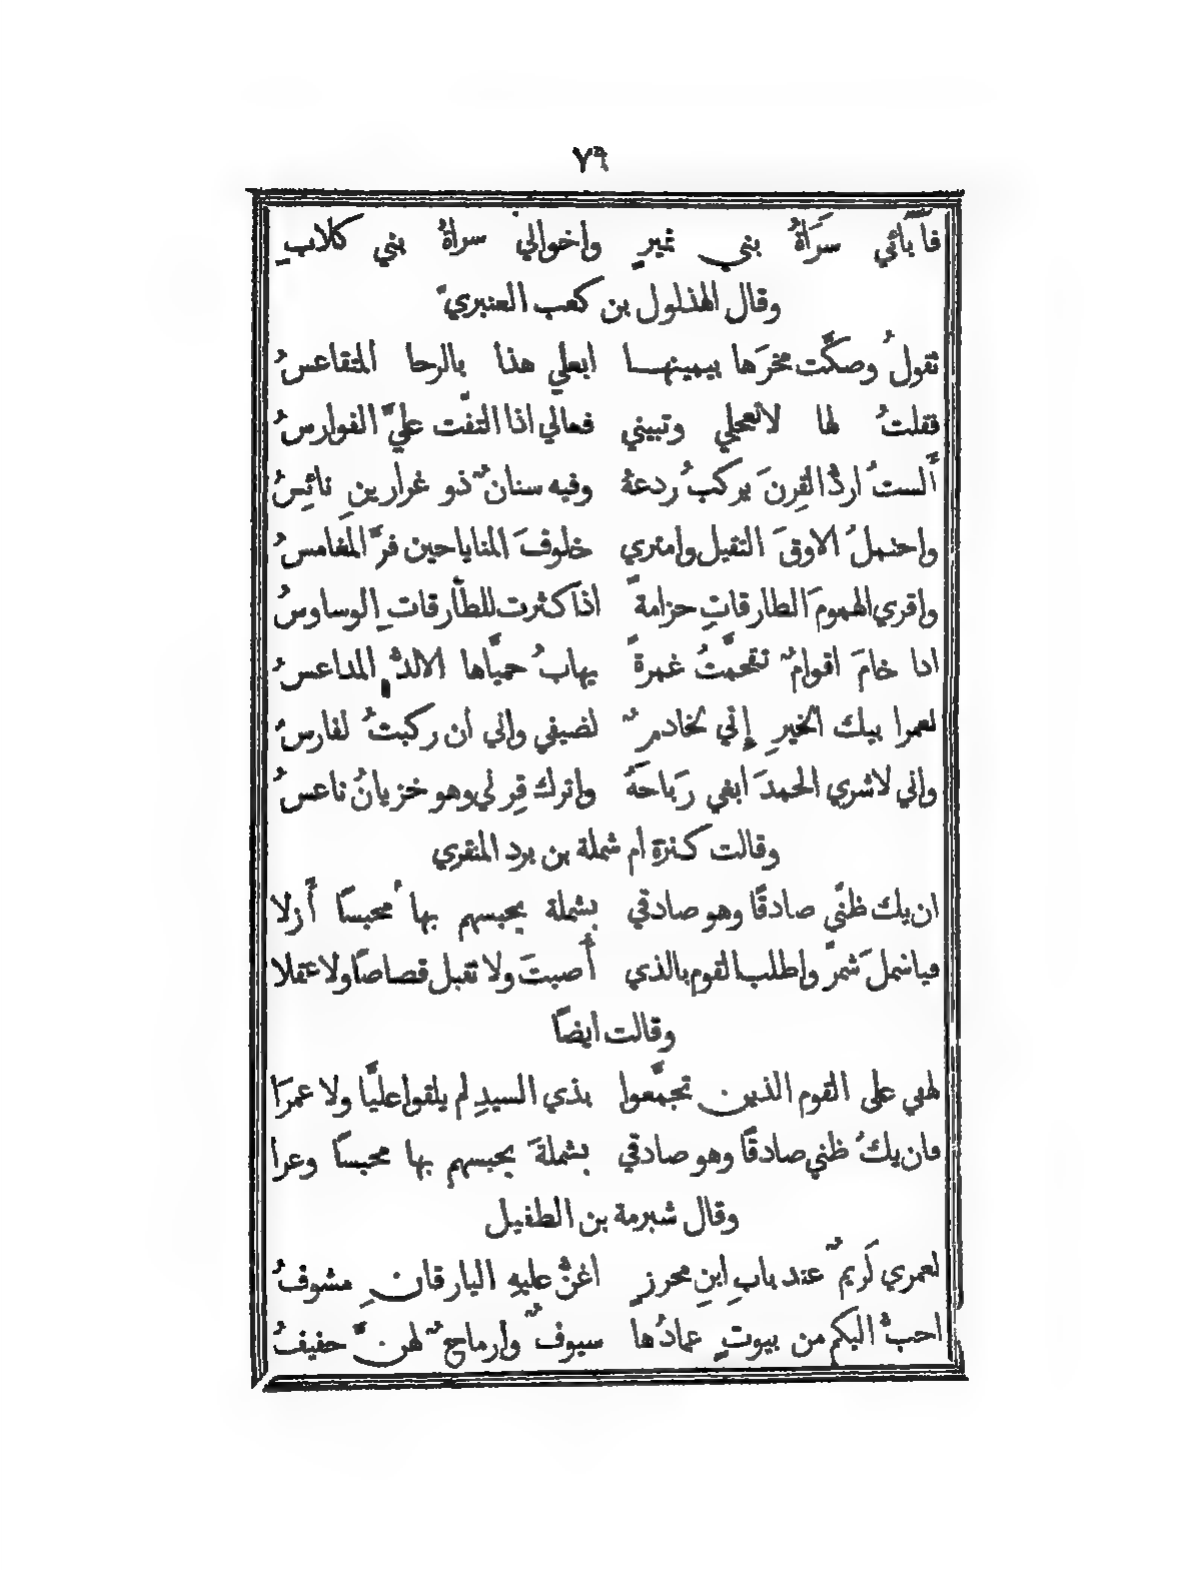 ٧٩
فآبائي سَرَاةُ بني نميرٍ واخوالي سراةُ بني كلابِ
وقال الهذلول بن كعب العنبريّ
تقولُ وصكَّت نخرَها بيمينها ابعلي هذا بالرحا المتقاعسُ
فقلتُ لها لاتعجلي وتبيني فعالي اذا التفّت عليَّ الفوارسُ
ألستُ اردُّ القِرنَ يركبُ ردعهُ وفيه سنانٌ ذو غرارينِ نائِسُ
واحتملُ الاوقَ الثقيل وامتري خلوفَ المنايا حين فرَّ المغامسُ
واقري الهمومَ الطارقاتِ حزامةً اذا كثرت للطّارقاتِ الوساوسُ
اذا خامَ اقوامٌ تقحّمتُ غمرةً يهابُ حميّاها الالدُّ المداعسُ
لعمرا بيك الخيرِ إِني لخادمٌ لضيفي واني ان ركبتُ لفارسُ
واني لاشري الحمدَ ابغي رَباحَهُ واترك قِرني وهو خزيانُ ناعسُ
وقالت كنزة ام شملة بن برد المنقري
ان يك ظنّي صادقًا وهو صادقي بشملة يحبسهم بها محبسًا أزلا
فياشملَ شمّر واطلب القوم بالذي أُصبتَ ولا تقبل قصاصًا ولا عقلا
وقالت ايضًا
لهفي على القوم الذين تجمّعوا بذي السيدِ لم يلقوا عليًّا ولا عمرَا
فان يكُ ظني صادقًا وهو صادقي بشملةَ يحبسهم بها محبسًا وعرا
وقال شبرمة بن الطفيل
لعمري لَريمٌ عند بابِ ابنِ محرزٍ اغنُّ عليهِ اليارقانِ مشوفُ
احبُّ اليكم من بيوتٍ عمادُها سيوفٌ وارماحٌ لهنَّ حفيفُ